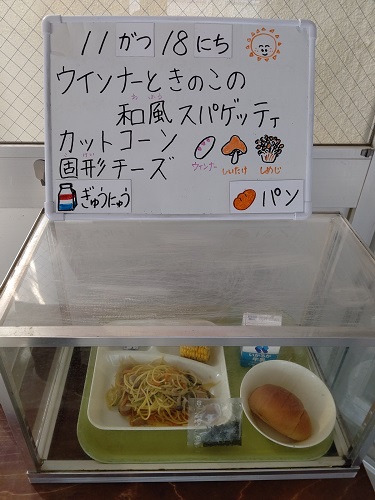 11がつ18にち
ウインナーときのこの
和風スパゲッティ
わ ふう
カットコーン
固形チーズ
こ けい
ウィンナー しいたけ しめじ
ぎゅうにゅう パン